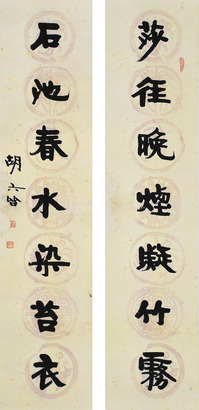 莎径晚煙凝竹霧
石池春水染苔衣
胡六皆